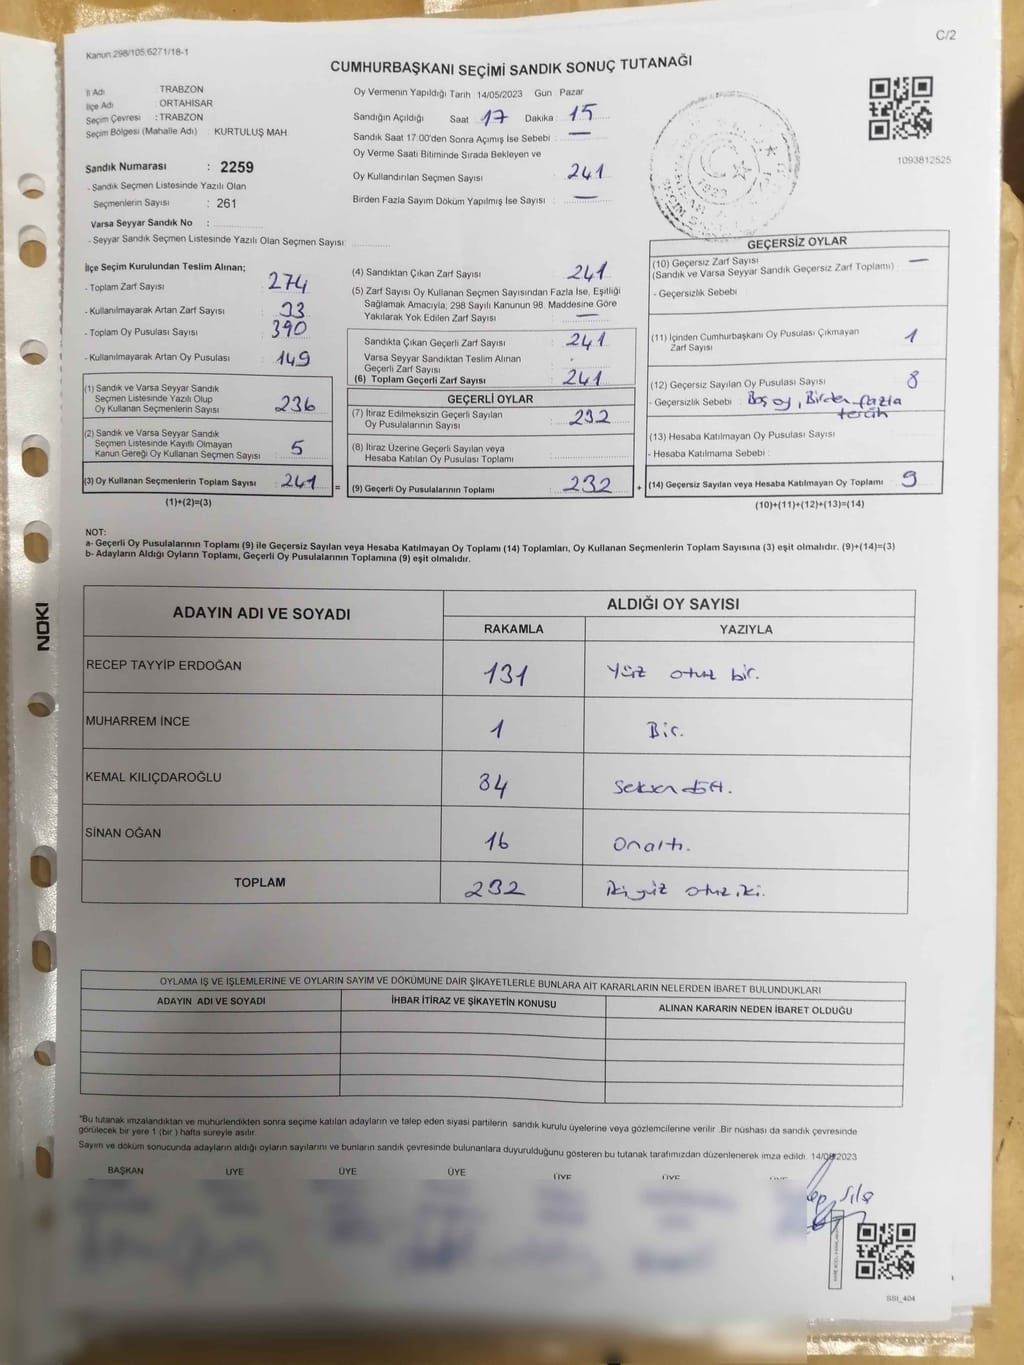 C/2
Kanun 298/105,6271/18-1
CUMHURBAŞKANI SEÇİMİ SANDIK SONUÇ TUTANAĞI
İl Adı TRABZON
İlçe Adı ORTAHİSAR
Seçim Çevresi : TRABZON
Seçim Bölgesi (Mahalle Adı) KURTULUŞ MAH
Sandık Numarası : 2259
- Sandık Seçmen Listesinde Yazılı Olan
Seçmenlerin Sayısı : 261
Varsa Seyyar Sandık No :
- Seyyar Sandık Seçmen Listesinde Yazılı Olan Seçmen Sayısı:
Oy Vermenin Yapıldığı Tarih 14/05/2023 Gün Pazar
Sandığın Açıldığı Saat 17 Dakika : 15
Sandık Saat 17:00'den Sonra Açımış İse Sebebi : —
Oy Verme Saati Bitiminde Sırada Bekleyen ve
Oy Kullandırılan Seçmen Sayısı 241
Birden Fazla Sayım Döküm Yapılmış İse Sayısı : —
1093812525
İlçe Seçim Kurulundan Teslim Alınan;
- Toplam Zarf Sayısı 274
- Kullanılmayarak Artan Zarf Sayısı : 33
- Toplam Oy Pusulası Sayısı : 390
- Kullanılmayarak Artan Oy Pusulası : 149
(1) Sandık ve Varsa Seyyar Sandık
Seçmen Listesinde Yazılı Olup
Oy Kullanan Seçmenlerin Sayısı : 236
(2) Sandık ve Varsa Seyyar Sandık
Seçmen Listesinde Kayıtlı Olmayan
Kanun Gereği Oy Kullanan Seçmen Sayısı : 5
(3) Oy Kullanan Seçmenlerin Toplam Sayısı : 241
(1)+(2)=(3)
=
(4) Sandıktan Çıkan Zarf Sayısı : 241
(5) Zarf Sayısı Oy Kullanan Seçmen Sayısından Fazla İse, Eşitliği
Sağlamak Amacıyla, 298 Sayılı Kanunun 98. Maddesine Göre
Yakılarak Yok Edilen Zarf Sayısı : —
Sandıkta Çıkan Geçerli Zarf Sayısı : 241
Varsa Seyyar Sandıktan Teslim Alınan
Geçerli Zarf Sayısı
(6) Toplam Geçerli Zarf Sayısı : 241
GEÇERLİ OYLAR
(7) İtiraz Edilmeksizin Geçerli Sayılan
Oy Pusulalarının Sayısı : 232
(8) İtiraz Üzerine Geçerli Sayılan veya
Hesaba Katılan Oy Pusulası Toplamı
(9) Geçerli Oy Pusulalarının Toplamı : 232
+
GEÇERSİZ OYLAR
(10) Geçersiz Zarf Sayısı
(Sandık ve Varsa Seyyar Sandık Geçersiz Zarf Toplamı) : —
- Geçersizlik Sebebi :
(11) İçinden Cumhurbaşkanı Oy Pusulası Çıkmayan
Zarf Sayısı 1
(12) Geçersiz Sayılan Oy Pusulası Sayısı 8
- Geçersizlik Sebebi : Boş oy, Birden fazla
tercih
(13) Hesaba Katılmayan Oy Pusulası Sayısı
- Hesaba Katılmama Sebebi :
(14) Geçersiz Sayılan veya Hesaba Katılmayan Oy Toplamı : 9
(10)+(11)+(12)+(13)=(14)
NOT:
a- Geçerli Oy Pusulalarının Toplamı (9) ile Geçersiz Sayılan veya Hesaba Katılmayan Oy Toplamı (14) Toplamları, Oy Kullanan Seçmenlerin Toplam Sayısına (3) eşit olmalıdır. (9)+(14)=(3)
b- Adayların Aldığı Oyların Toplamı, Geçerli Oy Pusulalarının Toplamına (9) eşit olmalıdır.
NOKI
ADAYIN ADI VE SOYADI ALDIĞI OY SAYISI
RAKAMLA YAZIYLA
RECEP TAYYİP ERDOĞAN 131 Yüz otuz bir.
MUHARREM İNCE 1 Bir.
KEMAL KILIÇDAROĞLU 84 Seksen dört.
SİNAN OĞAN 16 Onaltı.
TOPLAM 232 iki yüz otuz iki.
OYLAMA İŞ VE İŞLEMLERİNE VE OYLARIN SAYIM VE DÖKÜMÜNE DAİR ŞİKAYETLERLE BUNLARA AİT KARARLARIN NELERDEN İBARET BULUNDUKLARI
ADAYIN ADI VE SOYADI İHBAR İTİRAZ VE ŞİKAYETİN KONUSU ALINAN KARARIN NEDEN İBARET OLDUĞU
*Bu tutanak imzalandıktan ve mühürlendikten sonra seçime katılan adayların ve talep eden siyasi partilerin sandık kurulu üyelerine veya gözlemcilerine verilir .Bir nüshası da sandık çevresinde
görülecek bir yere 1 (bir ) hafta süreyle asılır.
Sayım ve döküm sonucunda adayların aldığı oyların sayılarını ve bunların sandık çevresinde bulunanlara duyurulduğunu gösteren bu tutanak tarafımızdan düzenlenerek imza edildi. 14/05/2023
BAŞKAN ÜYE ÜYE ÜYE ÜYE ÜYE
SSI_404